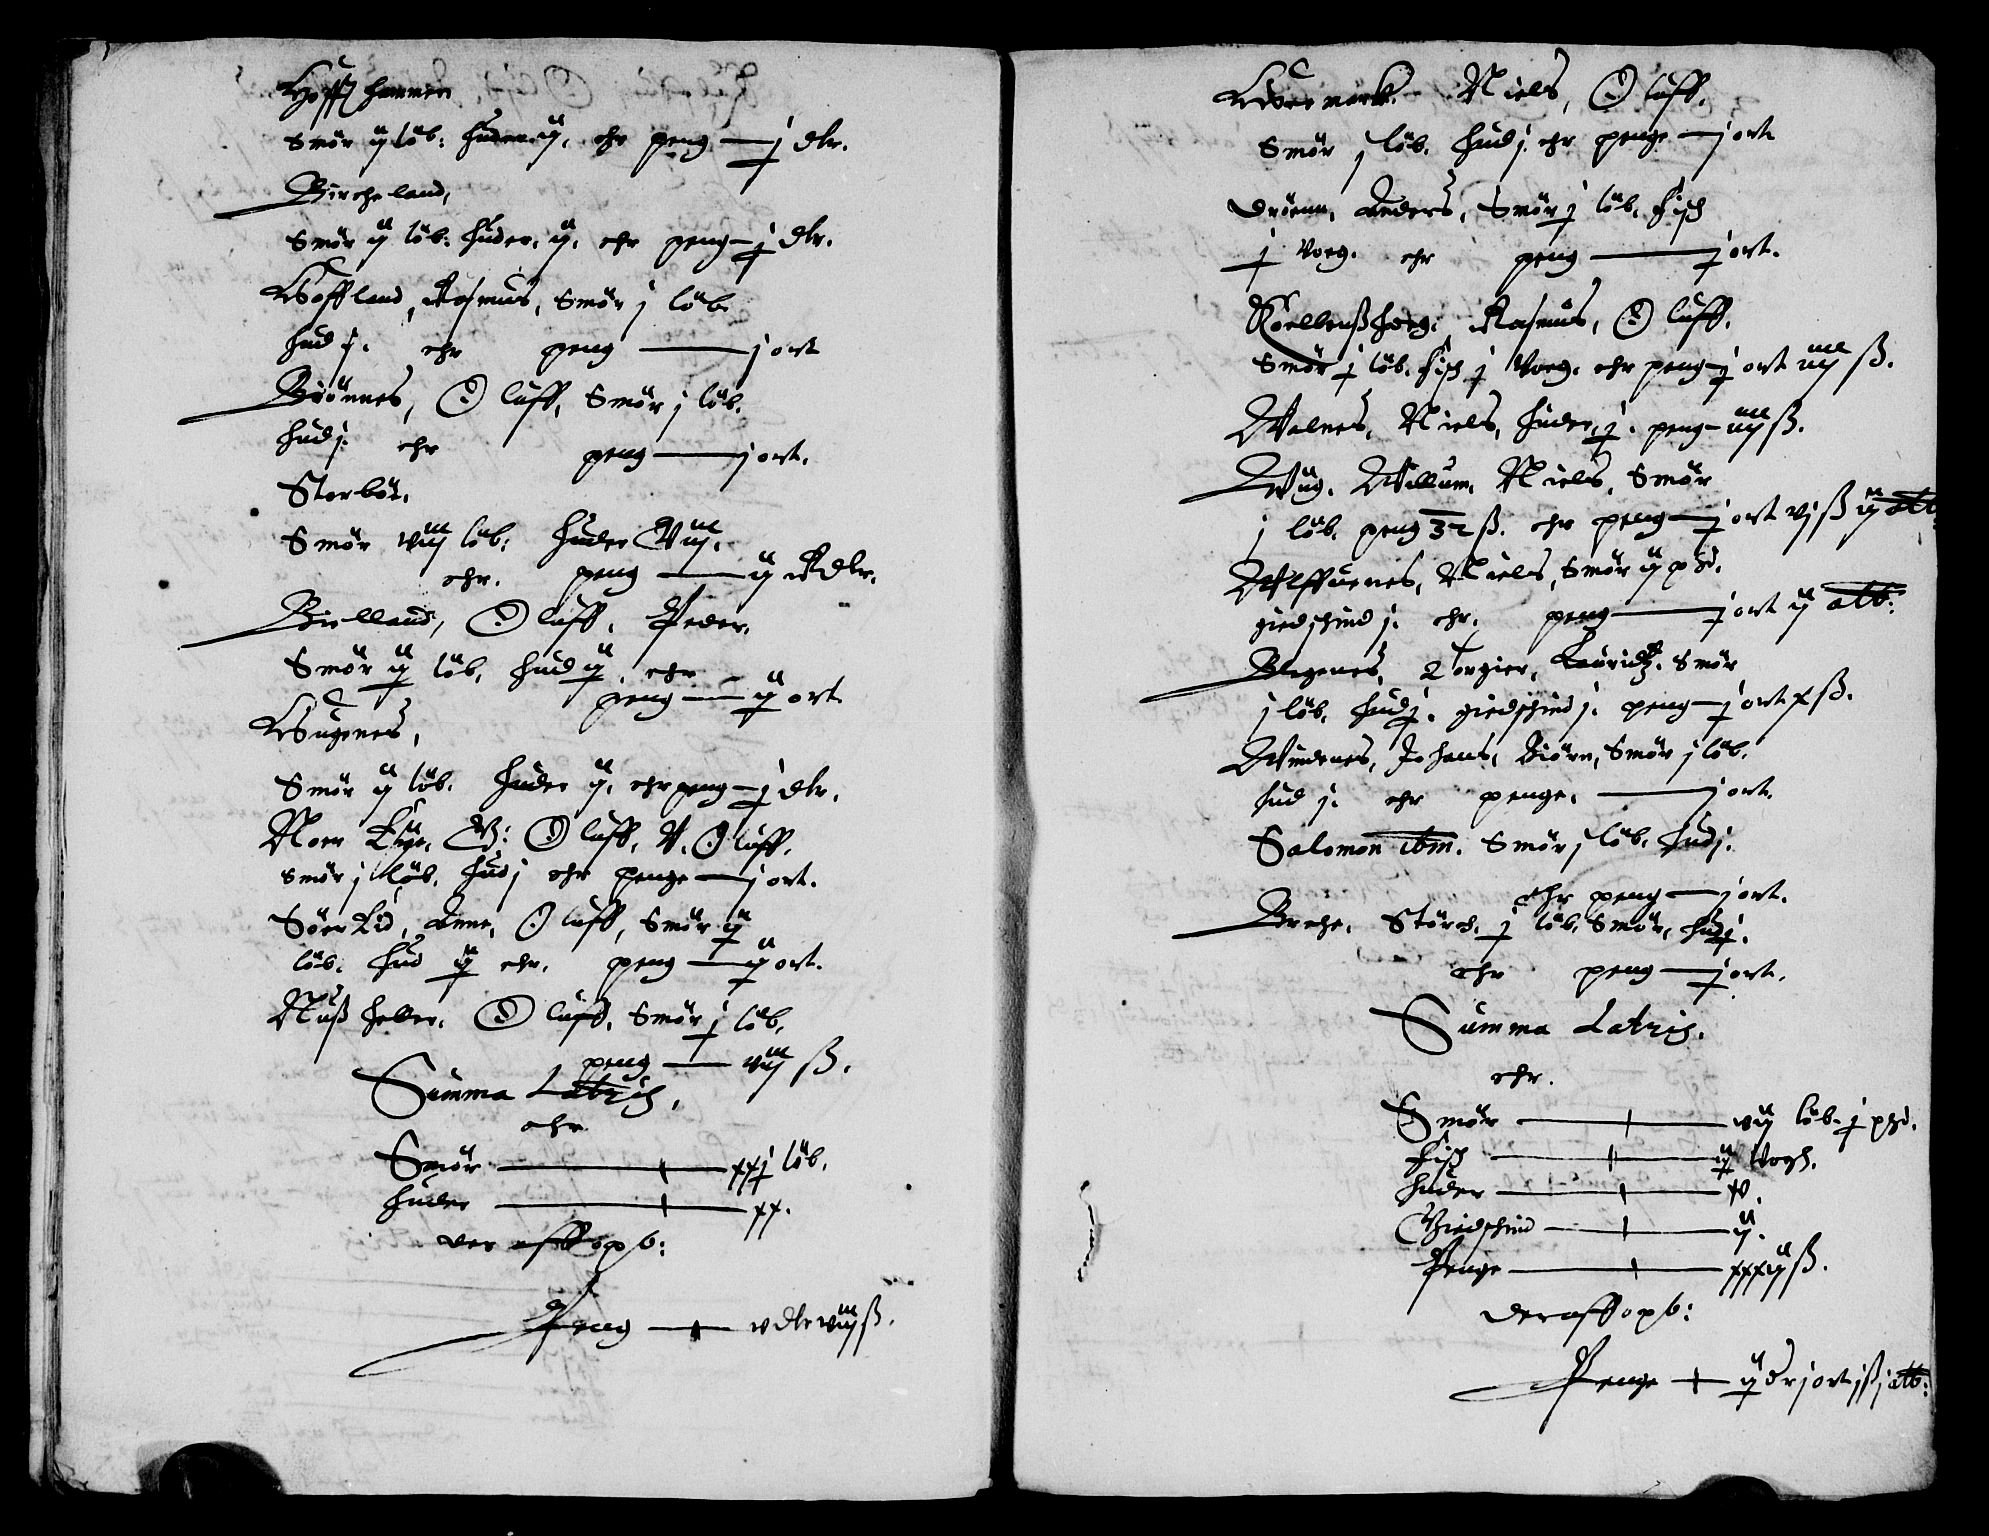 Hoffs hammen
Smör ij löb: huder ij, ehr peng — j dlr.
Bircheland,
Smör ij löb: huder, ij, ehr peng — j dlr.
Hoffland, Rasmus, Smör j löb.
hud j. ehr peng — j ort
Brönnes, Oluff, Smör j löb.
hud j. ehr peng — j ort.
Storböe.
Smör viij löb: huder Viij,
ehr. peng — ij Rdlr.
Birlland, Oluff, Peder,
Smör ij löb, hud ij, ehr
peng — ij ort
Hugenes,
Smör ij löb. huder ij, ehr peng — j dlr.
Noer Lije, Oluff, N. Oluff.
Smör j löb. hud j ehr penge — j ort.
Söer Lid, Anne, Oluff, Smör ij
löb. hud ij ehr. peng — ij ort.
Nuß heller, Oluff, Smör j löb.
peng — viij ß.
Summa Latrish,
ehr
Smör — xxj löb.
huder — xx.
der aff opb:
Peng — v dlr viij ß.
Niels, Oluff.
Smör j löb. hud j. ehr penge — j ort
Anders, Smör j löb. fisch
j Vog. ehr peng — j ort.
Rasmus, Oluff.
Smör j löb. fisch j Vog. ehr peng — j ort iiij ß.
Walnes, Niels, huder, j. peng — iiij ß.
Wiig, Willum, Niels, Smör
j löb. peng 32 ß. ehr peng — j ort vj ß ij alb.
Niels, Smör ij pd.
giedschind j. ehr. peng — j ort ij alb:
Torgier, Lauridtz. Smör
j löb. hud j. giedschind j. peng — j ort x ß.
Windenes, Johans, Biörn, Smör j löb.
hud j. ehr penge. — j ort.
Salomon ibm. Smör j löb. hud j.
ehr peng — j ort.
Breche, Störch. j löb. Smör, hud j.
ehr peng — j ort.
Summa Latrish.
ehr.
Smör — vij löb. j pd.
Fisch — ij Vogh.
huder — xv.
Giedschind — ij.
Penge — xxxij ß.
der aff opb:
Penge — ij dr j ort j ß j alb: